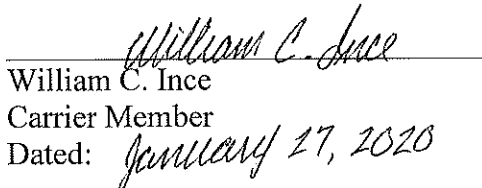 William C. Ince
William C. Ince
Carrier Member
Dated: January 27, 2020